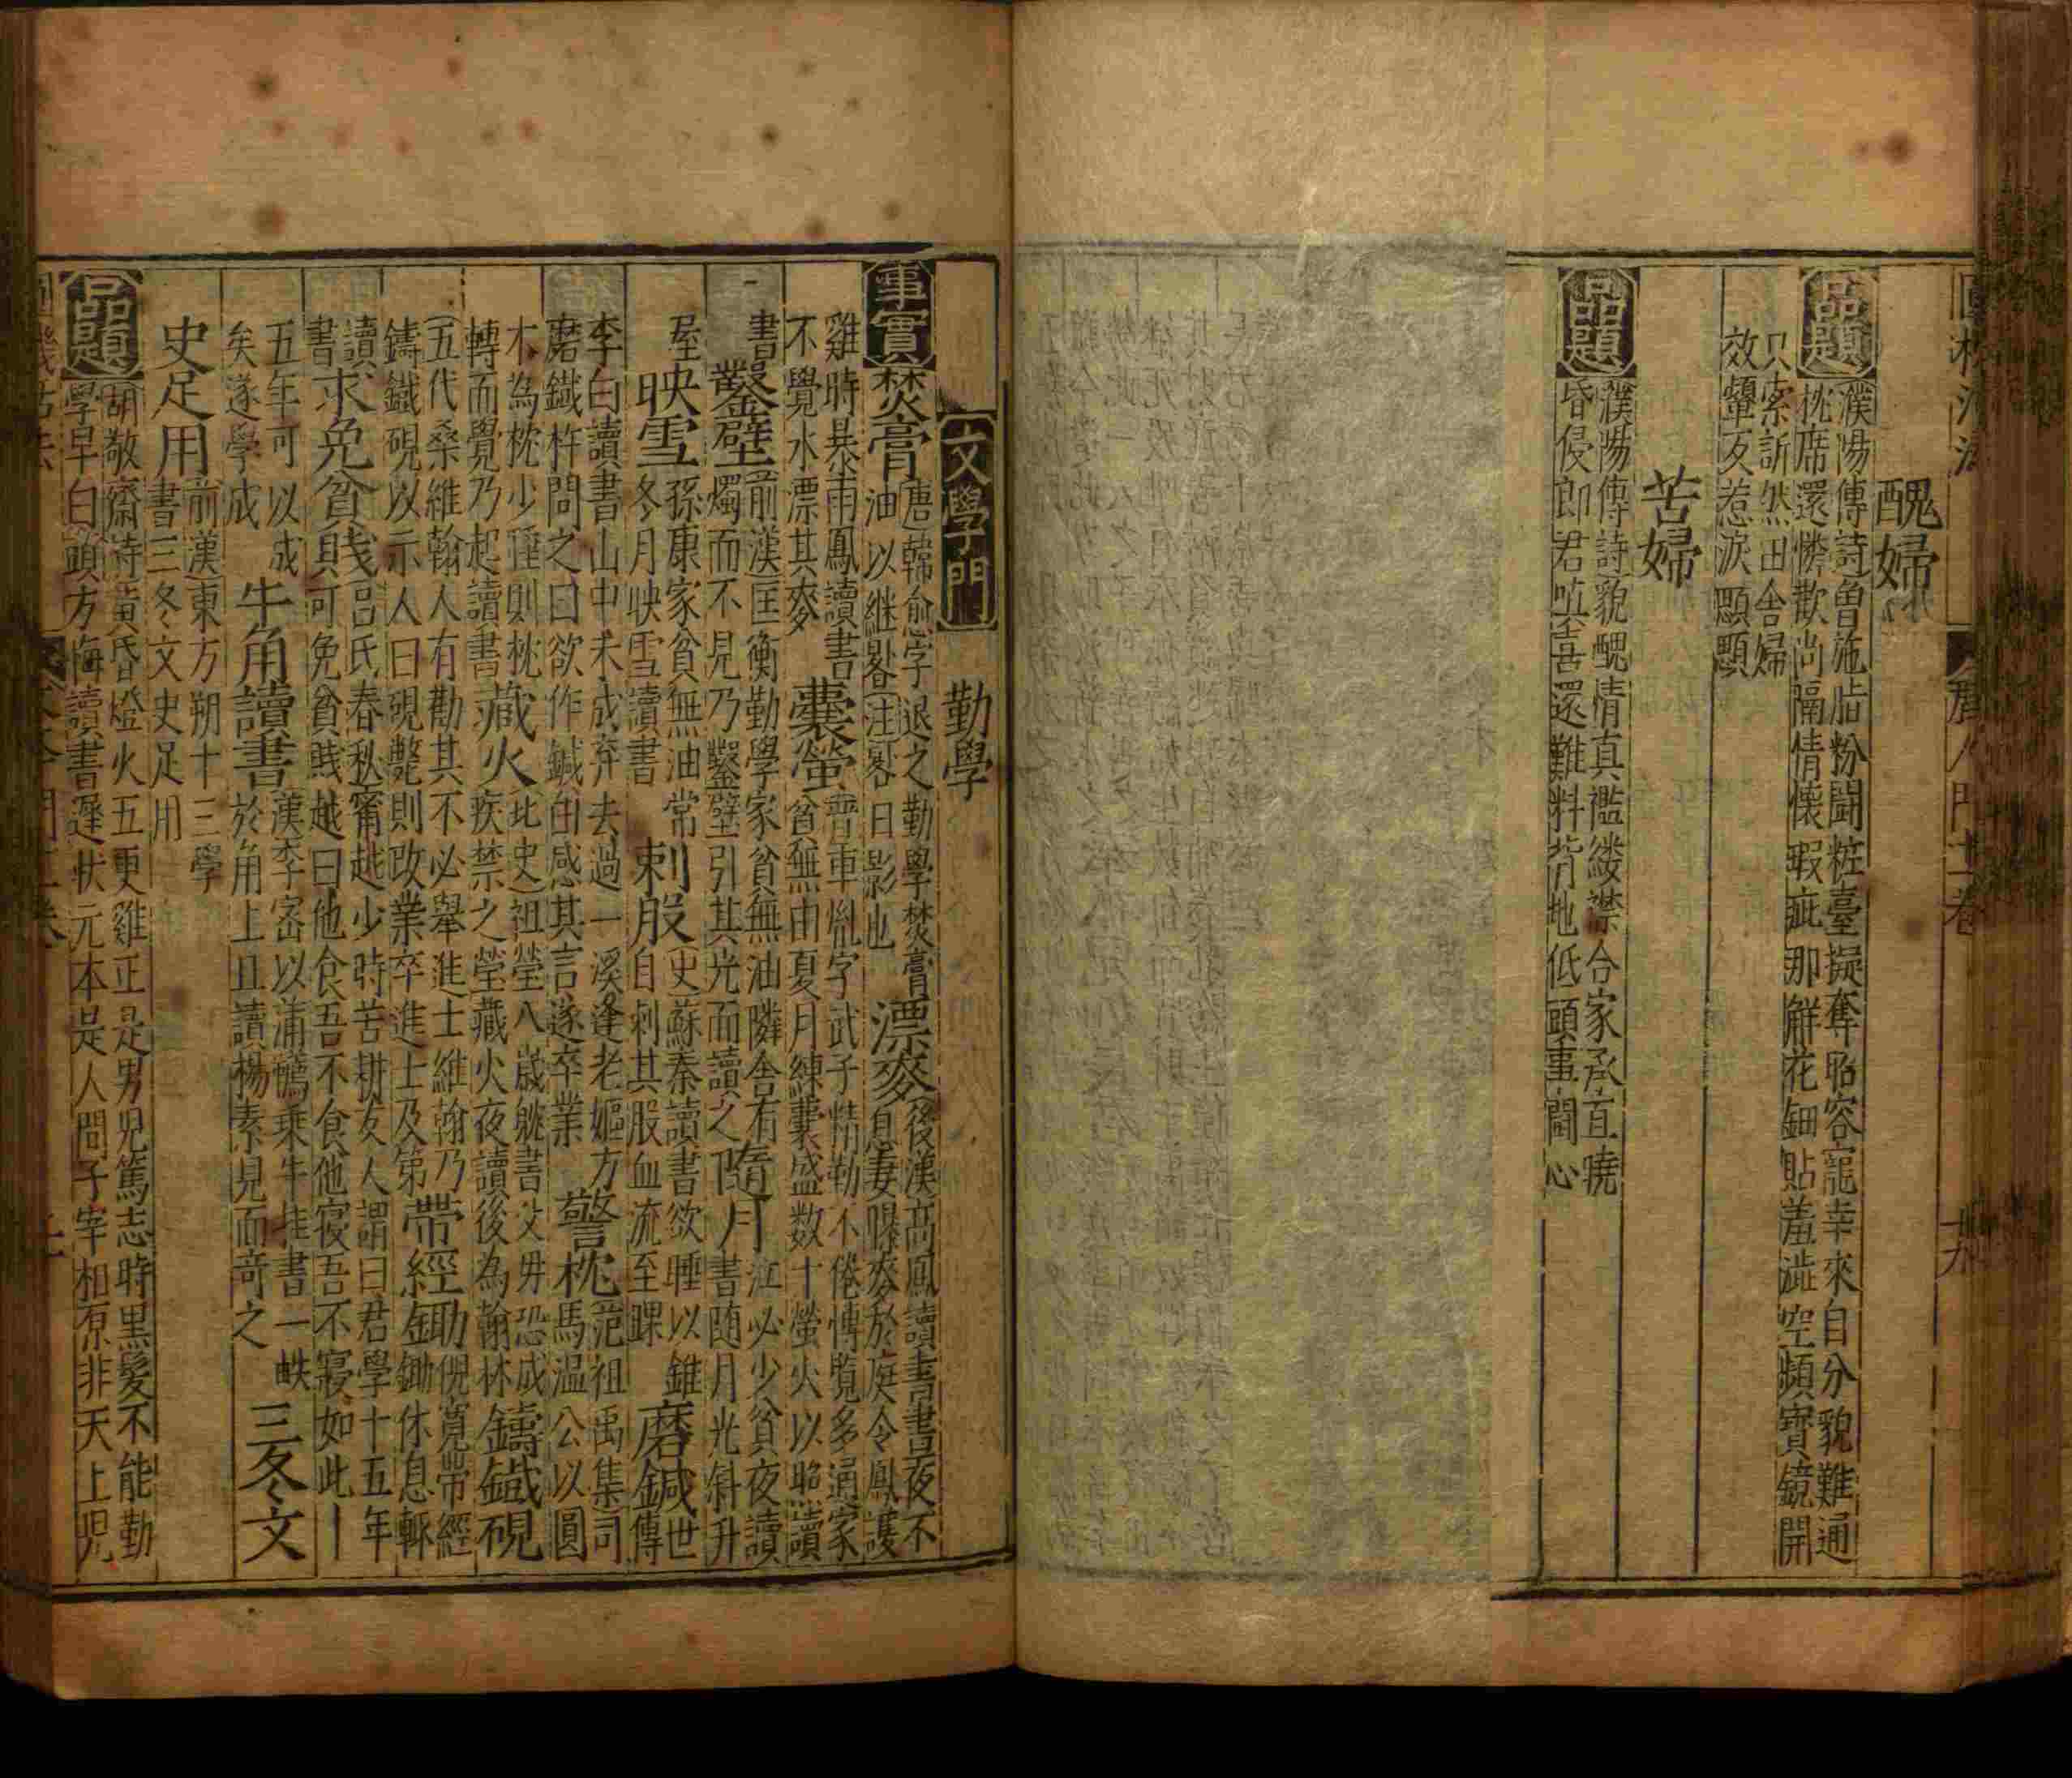 醜婦
品題 濮陽傳詩魯施脂粉鬪粧臺擬奪昭容寵幸來自分貌難通
枕席還憐歡尚隔情懷瑕疵那解花鈿貼羞澁空頻寶鏡開
只索訢然田舍婦
效顰反惹淚顋顋
苦婦
品題 濮陽傳詩貌醜情真襤縷襟合家承直曉
昏侵郎君嗔喜還難料背地低頭事關心
文學門 勤學
事實 焚膏 唐韓愈字退之勤學焚膏油以継晷注晷日影也 漂麥 後漢高鳳讀書晝夜不息妻曝麥於庭令鳳護
雞時暴雨鳳讀書不覺水漂其麥 囊螢 晉車胤字武子精勤不倦慱覧多通家貧無由夏月練囊盛数十螢火以照讀
書 鑿壁 前漢匡衡勤學家貧無油隣舍有燭而不見乃鑿壁引其光而讀之 隨月 江必少貧夜讀書随月光斜升
屋 映雪 孫康家貧無油常冬月映雪讀書 刺股 史蘇秦讀書欲睡以錐自刺其股血流至踝 磨鍼 世傳
李白讀書山中未成弃去過一溪逢老嫗方磨鐵杵問之曰欲作鍼白感其言遂卒業 警枕 范祖禹集司馬温公以圓
木為枕少睡則枕轉而覺乃起讀書 藏火 北史祖瑩八嵗躭書父毋恐成疾禁之瑩藏火夜讀後為翰林 鑄鐵硯
五代桑維翰人有勸其不必舉進士維翰乃鑄鐵硯以示人曰硯斃則改業卒進士及第 帶經鋤 倪寛帶經鋤休息輙
讀書 求免貧賤 呂氏春秋甯越少時苦耕友人謂曰君學十五年可免貧賤越曰他食吾不食他寢吾不寢如此
五年可以成矣遂學成 牛角讀書 漢李宻以蒲韉乘牛挂書一帙於角上且讀楊素見而竒之 三冬文
史足用 前漢東方朔十三學書三冬文史足用
品題 胡敬齋詩黄昏燈火五更雞正是男兒篤志時黒髪不能勤
學早白頭方悔讀書遲状元本是人間子宰相原非天上児